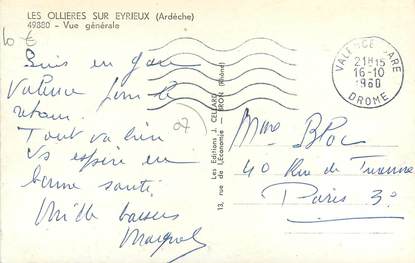 LES OLLIERES SUR EYRIEUX (Ardèche)
49880 - Vue générale
10 €
Suis en gare
Valence pour le
retour.
Tout va bien
Vs espère en
bonne santé
Mille baisers
07
Les Editions J. CELLARD
13, rue de l'Economie - BRON (Rhône)
VALENCE GARE
21H15
16-10
1960
DROME
Mme Bloc
40 Rue de Turenne
Paris 3e